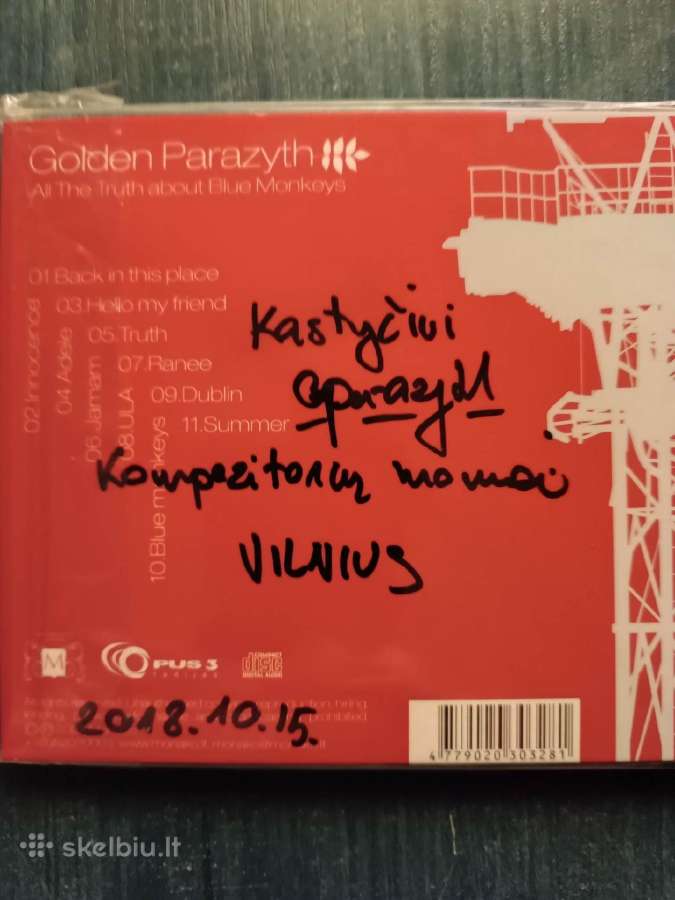 Golden Parazyth
All The Truth about Blue Monkeys
01.Back in this place
02 Innocence
03.Hello my friend
04 Adele
05.Truth
06.Jamam
07.Ranee
08.ULA
09.Dublin
10.Blue monkeys
11.Summer
Kastyčiui
Kompozitorių namai
VILNIUS
M
OPUS 3
radijas
COMPACT
disc
DIGITAL AUDIO
2018.10.15.
4 779020 303281
skelbiu.lt